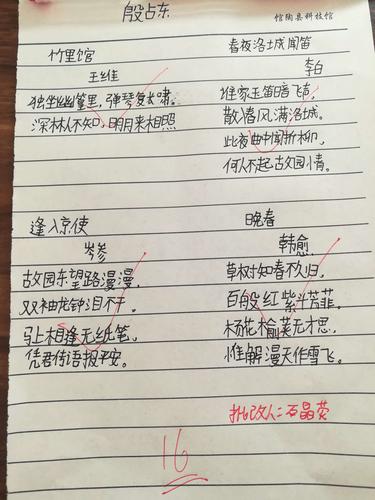 殷占东
馆陶县科技馆
竹里馆
王维
独坐幽篁里，弹琴复长啸。
深林人不知，明月来相照
春夜洛城闻笛
李白
谁家玉笛暗飞声，
散入春风满洛城。
此夜曲中闻折柳，
何人不起故园情。
逢入京使
岑参
故园东望路漫漫，
双袖龙钟泪不干。
马上相逢无纸笔，
凭君传语报平安。
晚春
韩愈
草树知春不久归，
百般红紫斗芳菲。
杨花榆荚无才思，
惟解漫天作雪飞。
批改人：石晶荧
16